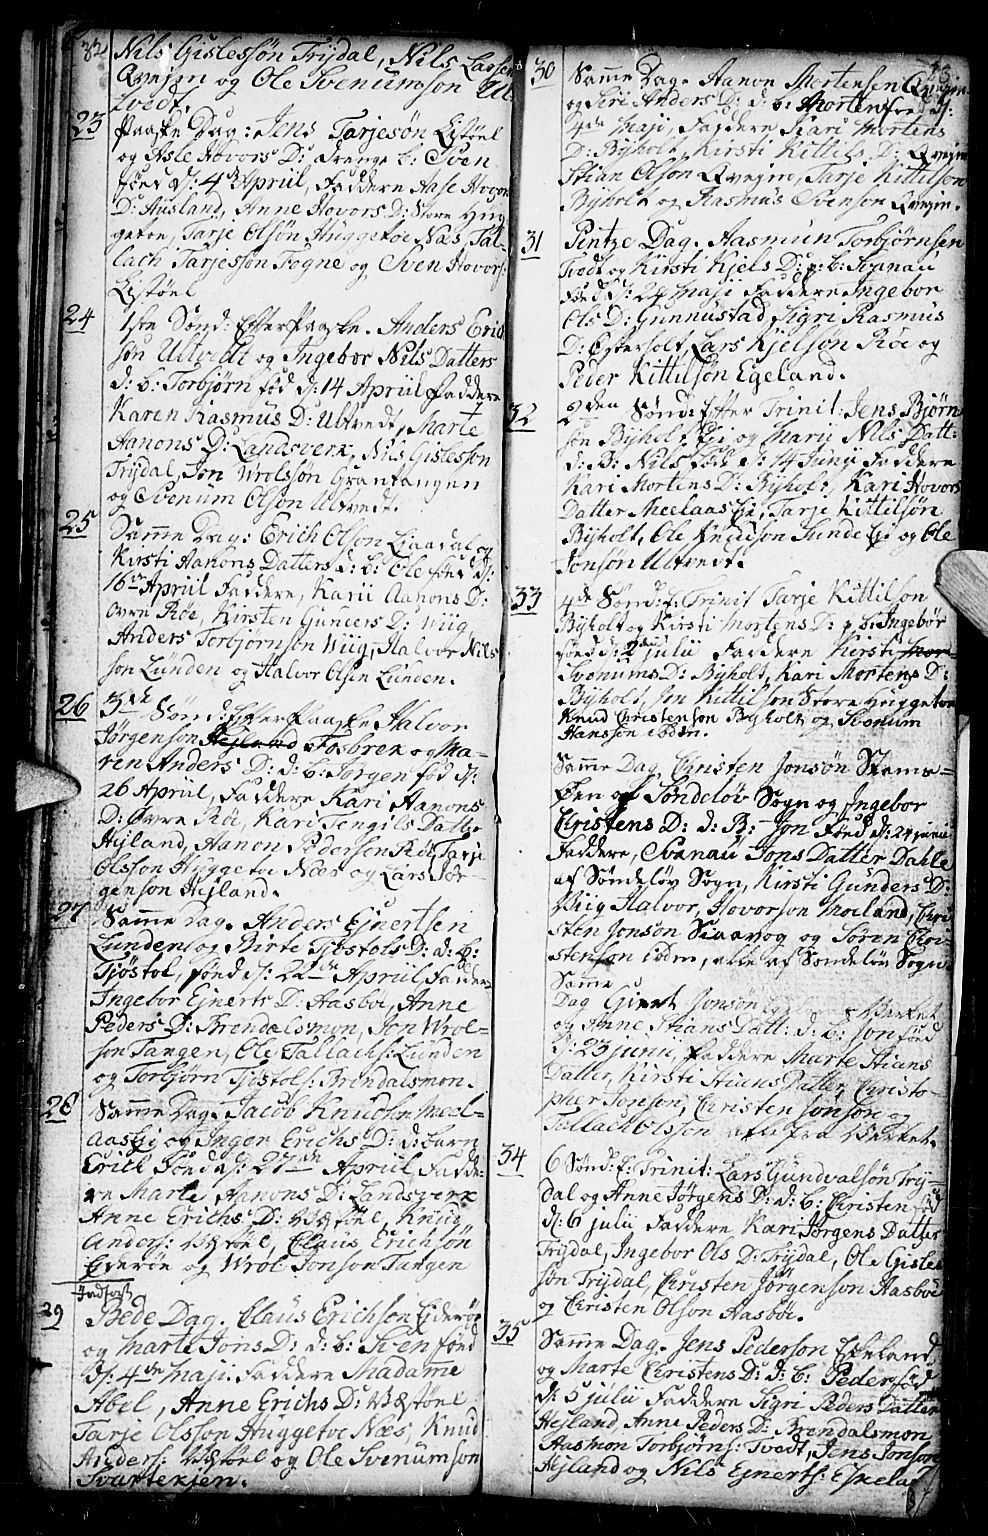 32
Nils Gislessøn Trydal, Nils Larsen
Qvejm og Ole Svenumson Ul-
tvedt.
23
Paaske Dag: Jens Tarjesøn Listøel
og Asle Hovors D: Drenge b: Sven
føed d: 4 April, Faddere Aase Hovors
D: Ausland, Anne Hovors D: Store Hug-
getoe, Tarje Olsøn Huggetoe Næs, Tal-
lach Tarjessøn Togne og Sven Hovors:
Listøel
24
1ste Sønd: Efter Paaske. Anders Erich
søn Ultvedt og Ingebor Nils Datters
d: b: Torbjørn fød d: 14 April Faddere
Karen Rasmus D: Ultvedt, Marte
Aanons D: Landsverk, Nils Gislesson
Trydal, Jon Wrolssøn Grantangen
og Svenum Olson Ultvedt.
25
Samme Dag: Erich Olson Liaadal og
Kirsti Aanons Datters d: b: Ole føed d:
16 April Faddere, Karii Aanons D:
Øvre Røe, Kirsten Gunders D: Wiig
Anders Torbjørnson Wiig, Halvor Nils
søn Lunden og Halvor Olsen Lunden.
26
3de Sønd: Efter Paaske Halvor
Jørgenson Hejland Fosbrek og Ma-
ren Anders D: d: b: Jørgen fød d:
26 April, Faddere Kari Aanons
D: Øvre Røe, Kari Tengils Datt:
Hejland, Aanon Pedersen Røe, Tarje
Olsson Huggetoe Næs og Lars Jør-
genson Hejland.
27
Samme Dag. Anders Ejnertsen
Lunden og Birte Tjøstols D: d: b:
Tjøstol, føed d: 22de April Fadder
Ingebor Ejnerts D: Aasboe, Anne
Peders D: Brendalsmon, Jon Wrol-
son Tangen, Ole Tallachs: Lunden
og Torbjørn Tjøstols: Brendalsmon.
28
Samme Dag. Jacob Knudsen Meel-
aas og Inger Erichs D: d: barn
Erich føed d: 27de April Fadde-
re Marte Aanons D: Landsverk
Anne Erichs D: Wæstøel, Knud
Anders: Wæstøel, Claus Erichsøn
Ederøe og Wrol Jonson Tangen
29
Bede Dag. Claus Erichson Ederøe
og Marte Jons D: d: b: Sven føed
d: 4de Maji. Faddere Madamme
Abel, Anne Erichs D: Wæstøel
Tarje Olsson Huggetoe Næs, Knud
Anders: Wæstøel og Ole Svenumson
Svartekjen.
30
Samme Dag. Aanon Mortensen Qvejm
og Siri Anders D: d: b: Morten fød d:
4de Maji, Faddere Kari Mortens
D: Byholt, Kirsti Kittils D: Qvejm
Stian Olson Qvejm, Tarje Kittilson
Byholt og Rasmus Svenson Qvejm.
31
Pintze Dag. Aasmun Torbjørnsen
Tvedt og Kirsti Kjels D: p: b: Svanau
føed d: 24 Maji Faddere Ingebor
Ols D: Gunnustad, Sigri Rasmus
D: Esterholt, Lars Kjelsøn Røe og
Peder Kittilsøn Egeland.
32
2den Sønd: Efter Trinit: Jens Bjørn
søn Byholt Eje og Marii Nils Datt:
d: B: Nils født d: 14 Junii Faddere
Kari Mortens D: Byholt, Kari Hovors
Datter Meelaas Eje, Tarje Kittilsøn
Byholt, Ole Knudson Sunde Eje og Ole
Jonsøn Ultvedt.
33
4de Sønd: f: Trinit Tarje Kittilson
Byholt og Kirsti Mortens D: p b: Ingebør
føed d: 2 Julii Faddere Kirsti
Svenums D: Byholt, Kari Mortens D:
Byholt, Jon Kittilson Store Huggetoe
Knud Christenson Byholt og Svenum
Hansson ibdm.
Samme Dag Christen Jonsøn Stams-
øen af Søndeløv Sogn og Ingebor
Christens D: d: B: Jon Føed d: 24 Junii
Faddere, Svanau Jons Datter Dahle
af Søndeløv Sogn, Kirsti Gunders D:
Wiig Halvor, Hovorson Moeland, Chri-
sten Jonson Skaavog og Søren Chri-
stenson ibdm, alle af Søndeløv Sogn
Samme
Dag Giert Jonsøn Værket
og Anne Stians Datt: d: b: Jon føed
d: 23 Junii, Faddere Marte Stiens
Datter, Kirsti Stiens Datter, Christo-
pher Jonson, Christen Jonson og
Tallach Olsson alle fra Værket.
34
6 Sønd: f: Trinit: Lars Gundvalsøn Try-
dal og Anne Jørgens D: d: b: Christen fød
d: 6 Julii Faddere Kari Jørgens Datter
Trydal, Ingebor Ols D: Trydal, Ole Gisles
søn Trydal, Christen Jørgenson Aasboe
og Christen Olson Aasbøe.
35
Samme Dag. Jens Pederson Ekeland
og Marte Christens D: d: b: Peder fød
d: 5 Julii Faddere Sigri Peders Datter
Hejland, Anne Peders D: Brendalsmon
Aasmon Torbjørns: Tvedt, Jens Jonson
Hejland og Nils Ejnerts: Eskeland